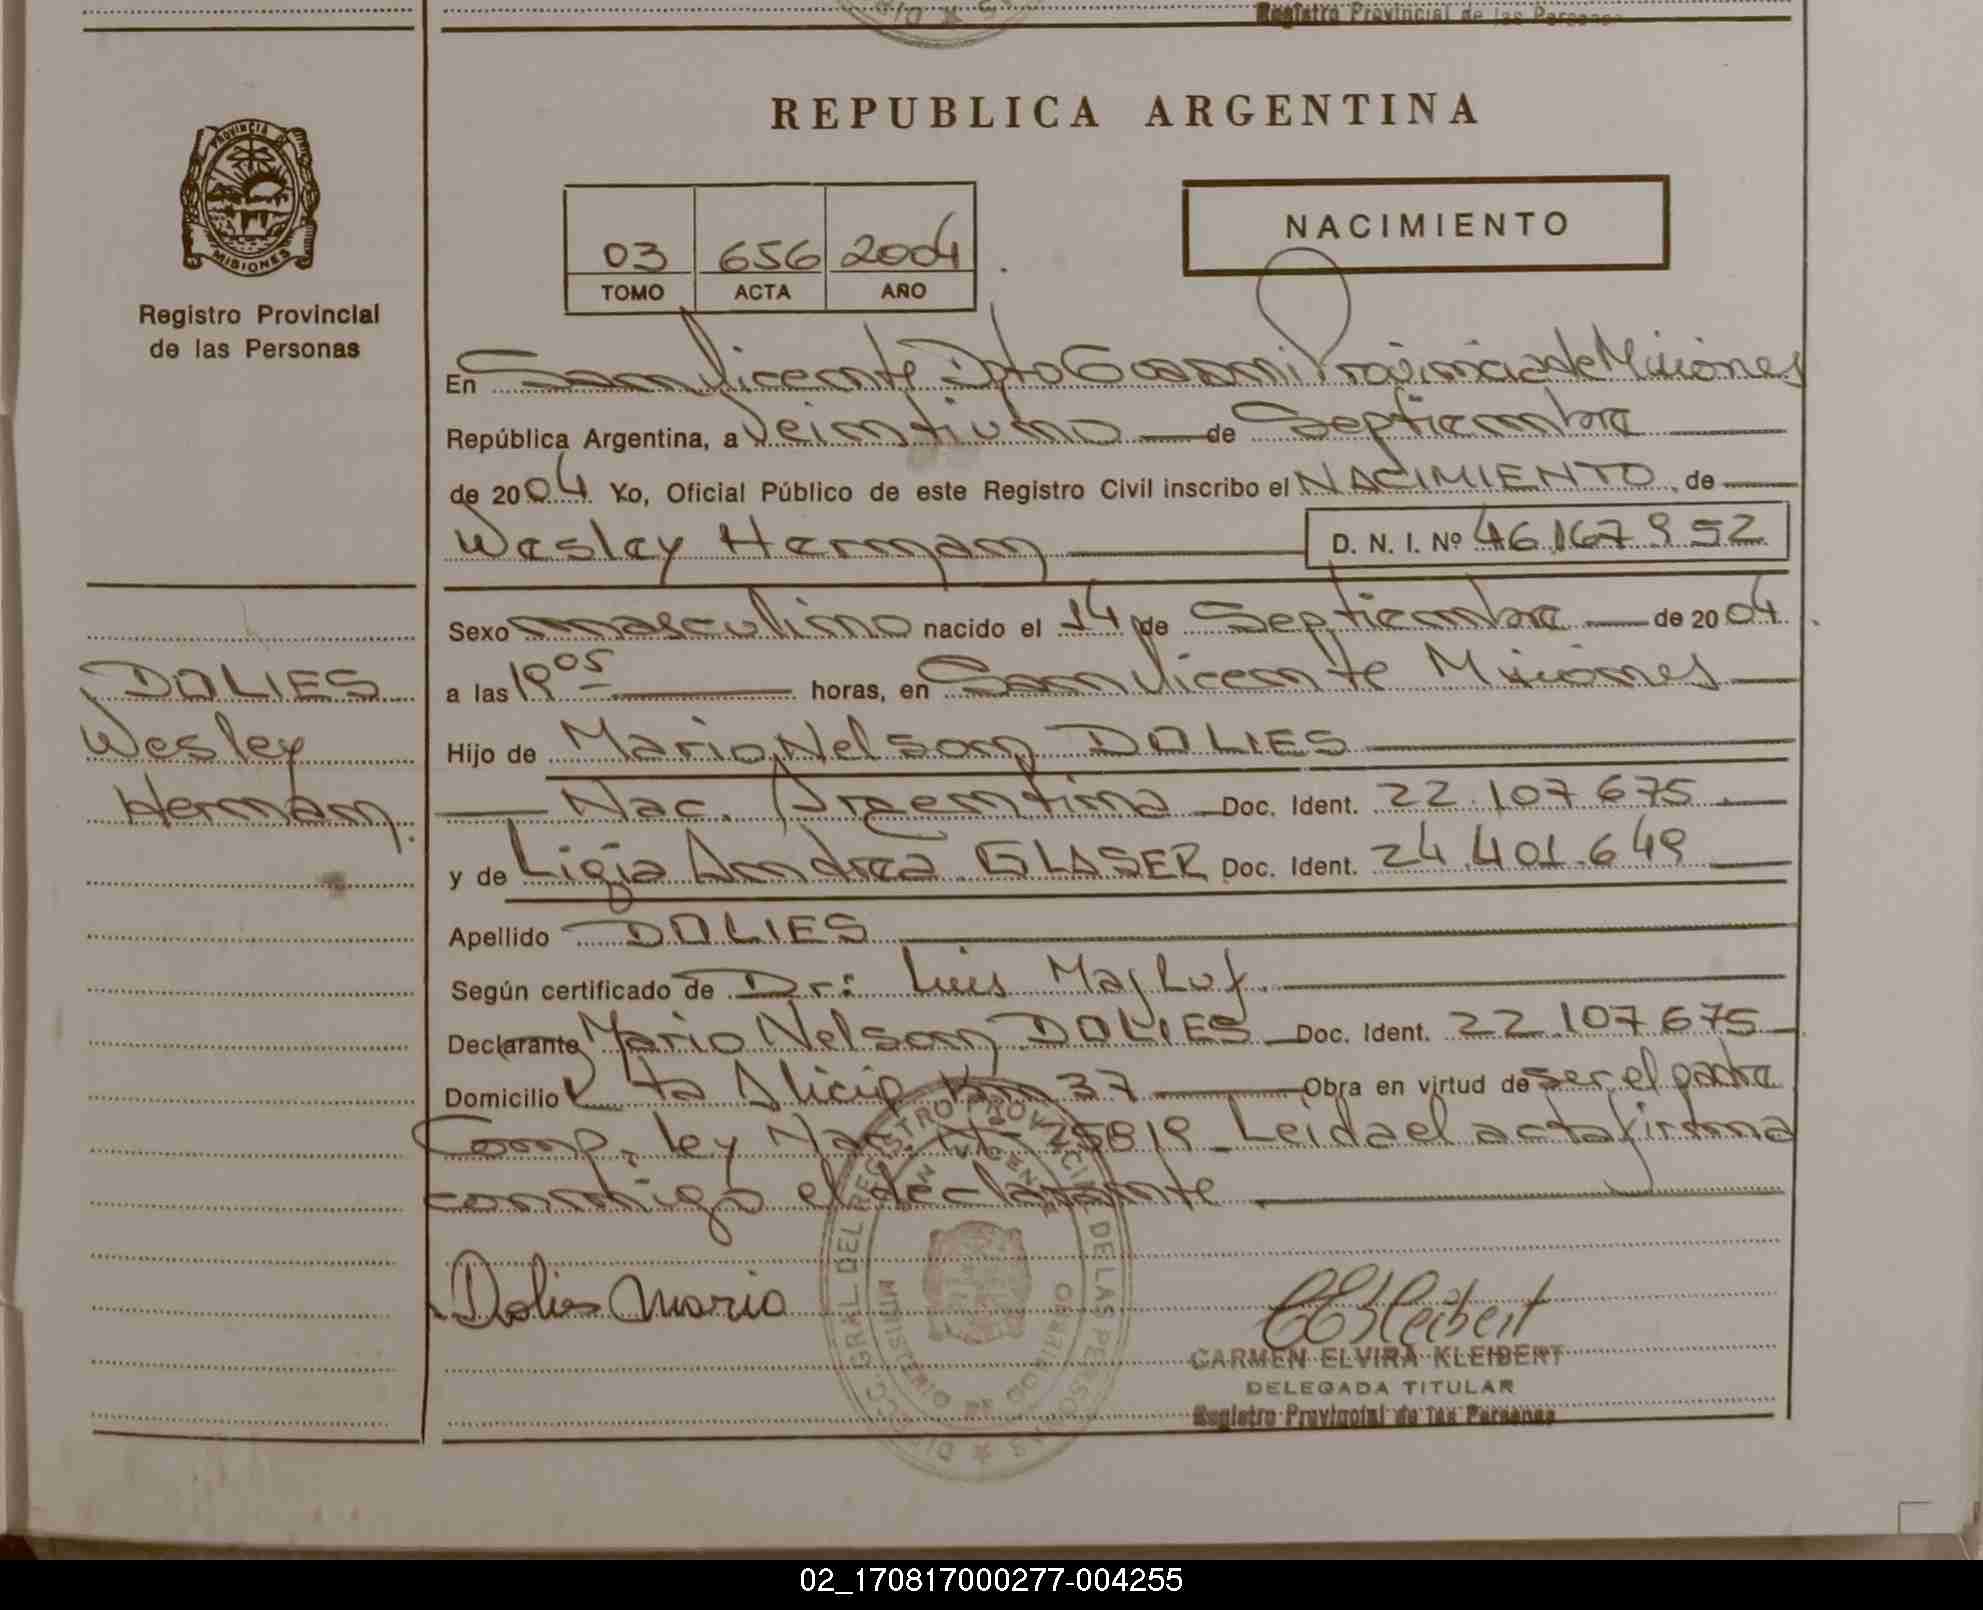 Registro Provincial de las Personas
REPUBLICA ARGENTINA
PROVINCIA DE
MISIONES
Registro Provincial
de las Personas
03 656 2004
TOMO ACTA AÑO
NACIMIENTO
En San Vicente Dpto Guarani Provincia de Misiones
República Argentina, a Veintiuno de Septiembre
de 2004 Yo, Oficial Público de este Registro Civil inscribo el NACIMIENTO, de
Wesley Hernan D. N. I. Nº 46.167.952
Sexo masculino nacido el 14 de Septiembre de 2004.
a las 19 05 horas, en San Vicente Misiones
Hijo de Mario Nelson DOLIES
Nac. Argentina Doc. Ident. 22.107.675
y de Ligia Andrea GLASER Doc. Ident. 24.401.649
Apellido DOLIES
Según certificado de Dr: Luis Majluf.
Declarante Mario Nelson DOLIES Doc. Ident. 22.107.675
Domicilio Rta Alicia Km 37 Obra en virtud de ser el padre
Comp. ley Nac. Nº 25819 Leida el acta firma
conmigo el declarante
DOLIES
Wesley
Hernán.
Dolies Mario
DIRECC. GRAL DEL REGISTRO PROVINCIAL DE LAS PERSONAS
SAN VICENTE
MINISTERIO GOBIERNO
CEKleibert
CARMEN ELVIRA KLEIBERT
DELEGADA TITULAR
Registro Provincial de las Personas
02_170817000277-004255